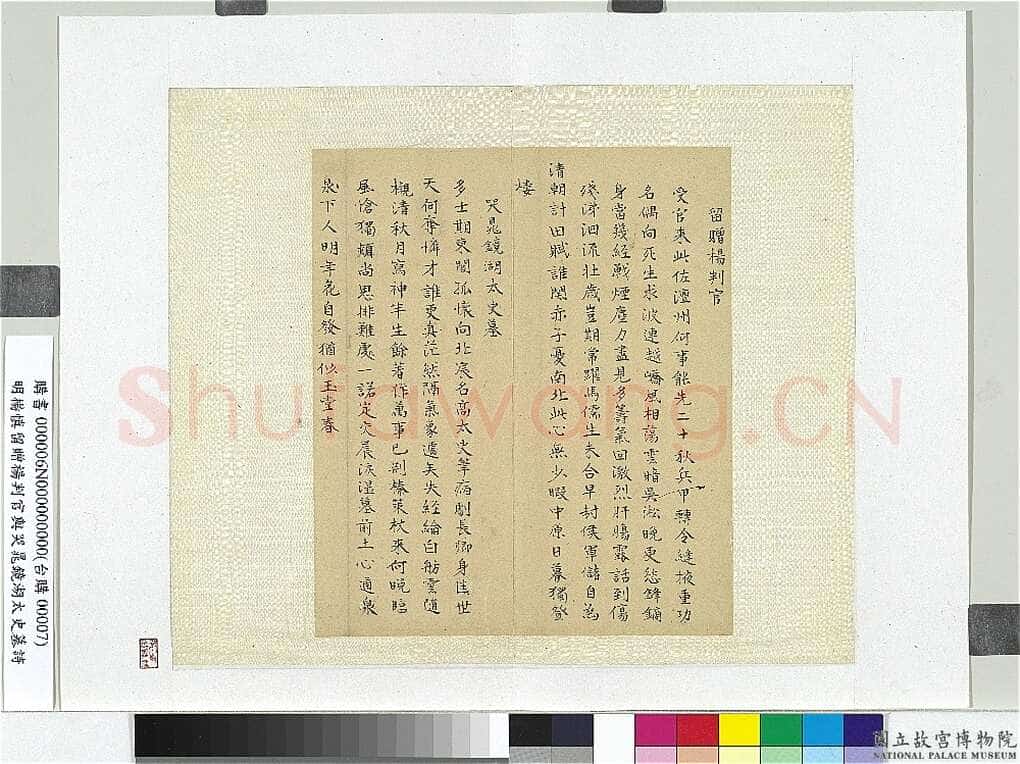 留贈楊判官
受官來此佐澶州何事能先二十秋兵甲轉令縫掖重功
名偶向死生求波連越嶠風相蕩雲暗吳淞晚更愁鋒鏑
身當幾經戰煙塵力盡見多籌氣回激烈肝腸露話到傷
殘涕泗流壯歲豈期常躍馬儒生未合早封侯軍儲自為
清朝計田賦誰關赤子憂南北此心無少暇中原日暮獨登
樓
哭晁鏡湖太史墓
多士期東閣孤懷向北宸名高太史筆病劇長卿身庶世
天何奪憐才誰更真茫然隔氣象遽矣失經綸白舫雲隨
櫬清秋月寫神半生餘著作萬事已荊榛策杖來何晚臨
風愴獨頻尚思排難處一諾定交晨淚濕墓前土心通泉
泉下人明年花自發猶似玉堂春
購書 000006N000000000(台購 00007)
明楊慎留贈楊判官與哭晁鏡湖太史墓詩
Shufawang.CN
國立故宮博物院
NATIONAL PALACE MUSEUM